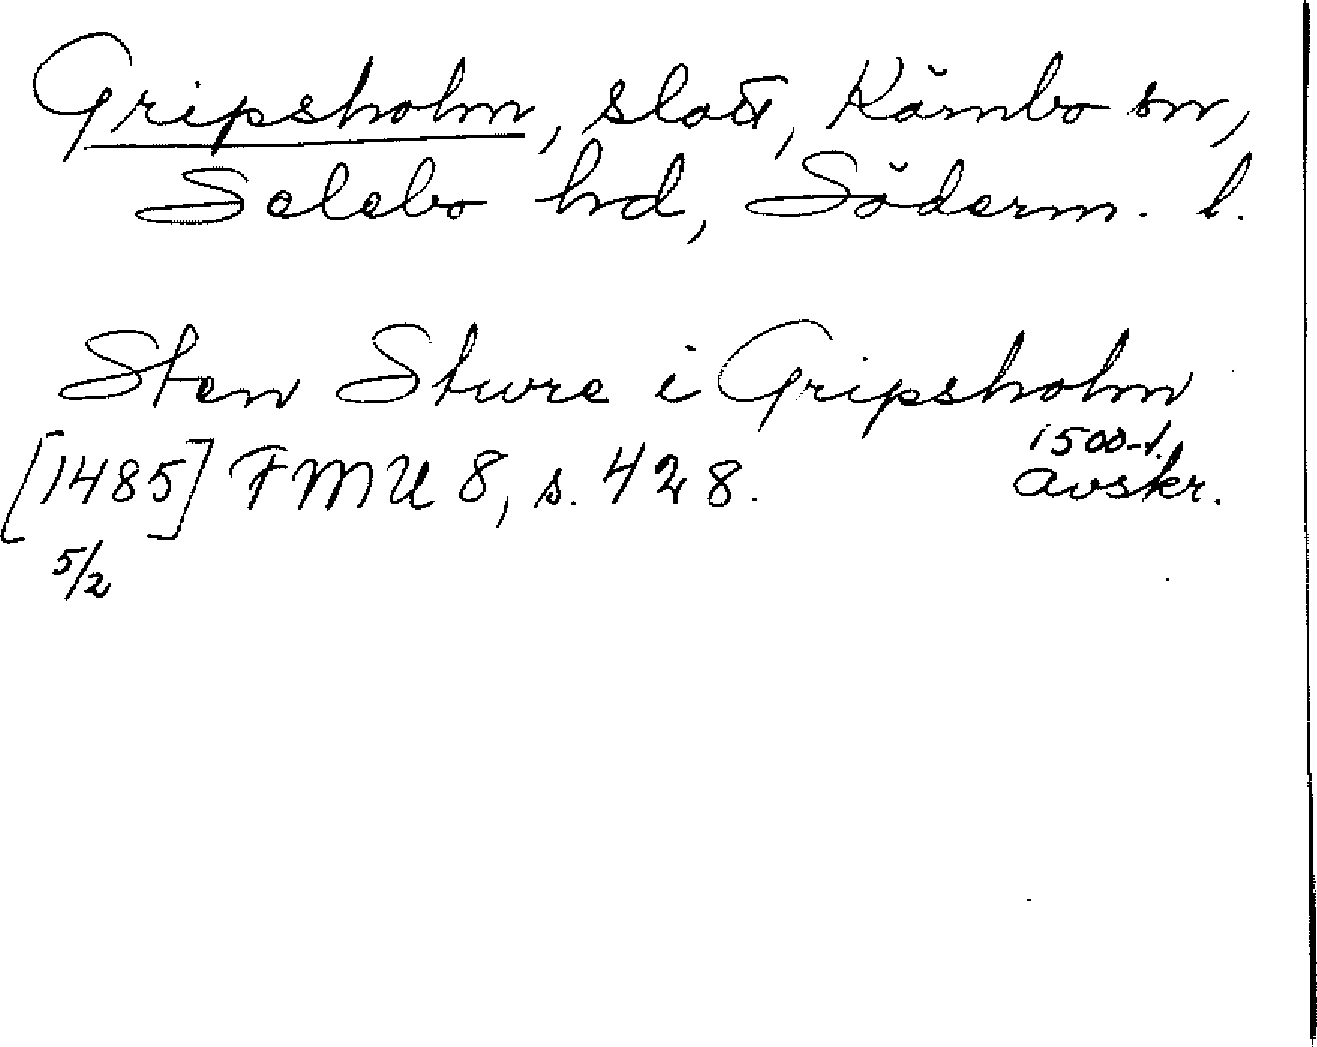 Gripsholm, slott, Kärnbo sn,
Selebo hd, Söderm. l.
Sten Sture i Gripsholm
[1485] FMU 8, s. 428. 1500-t. avskr.
5/2